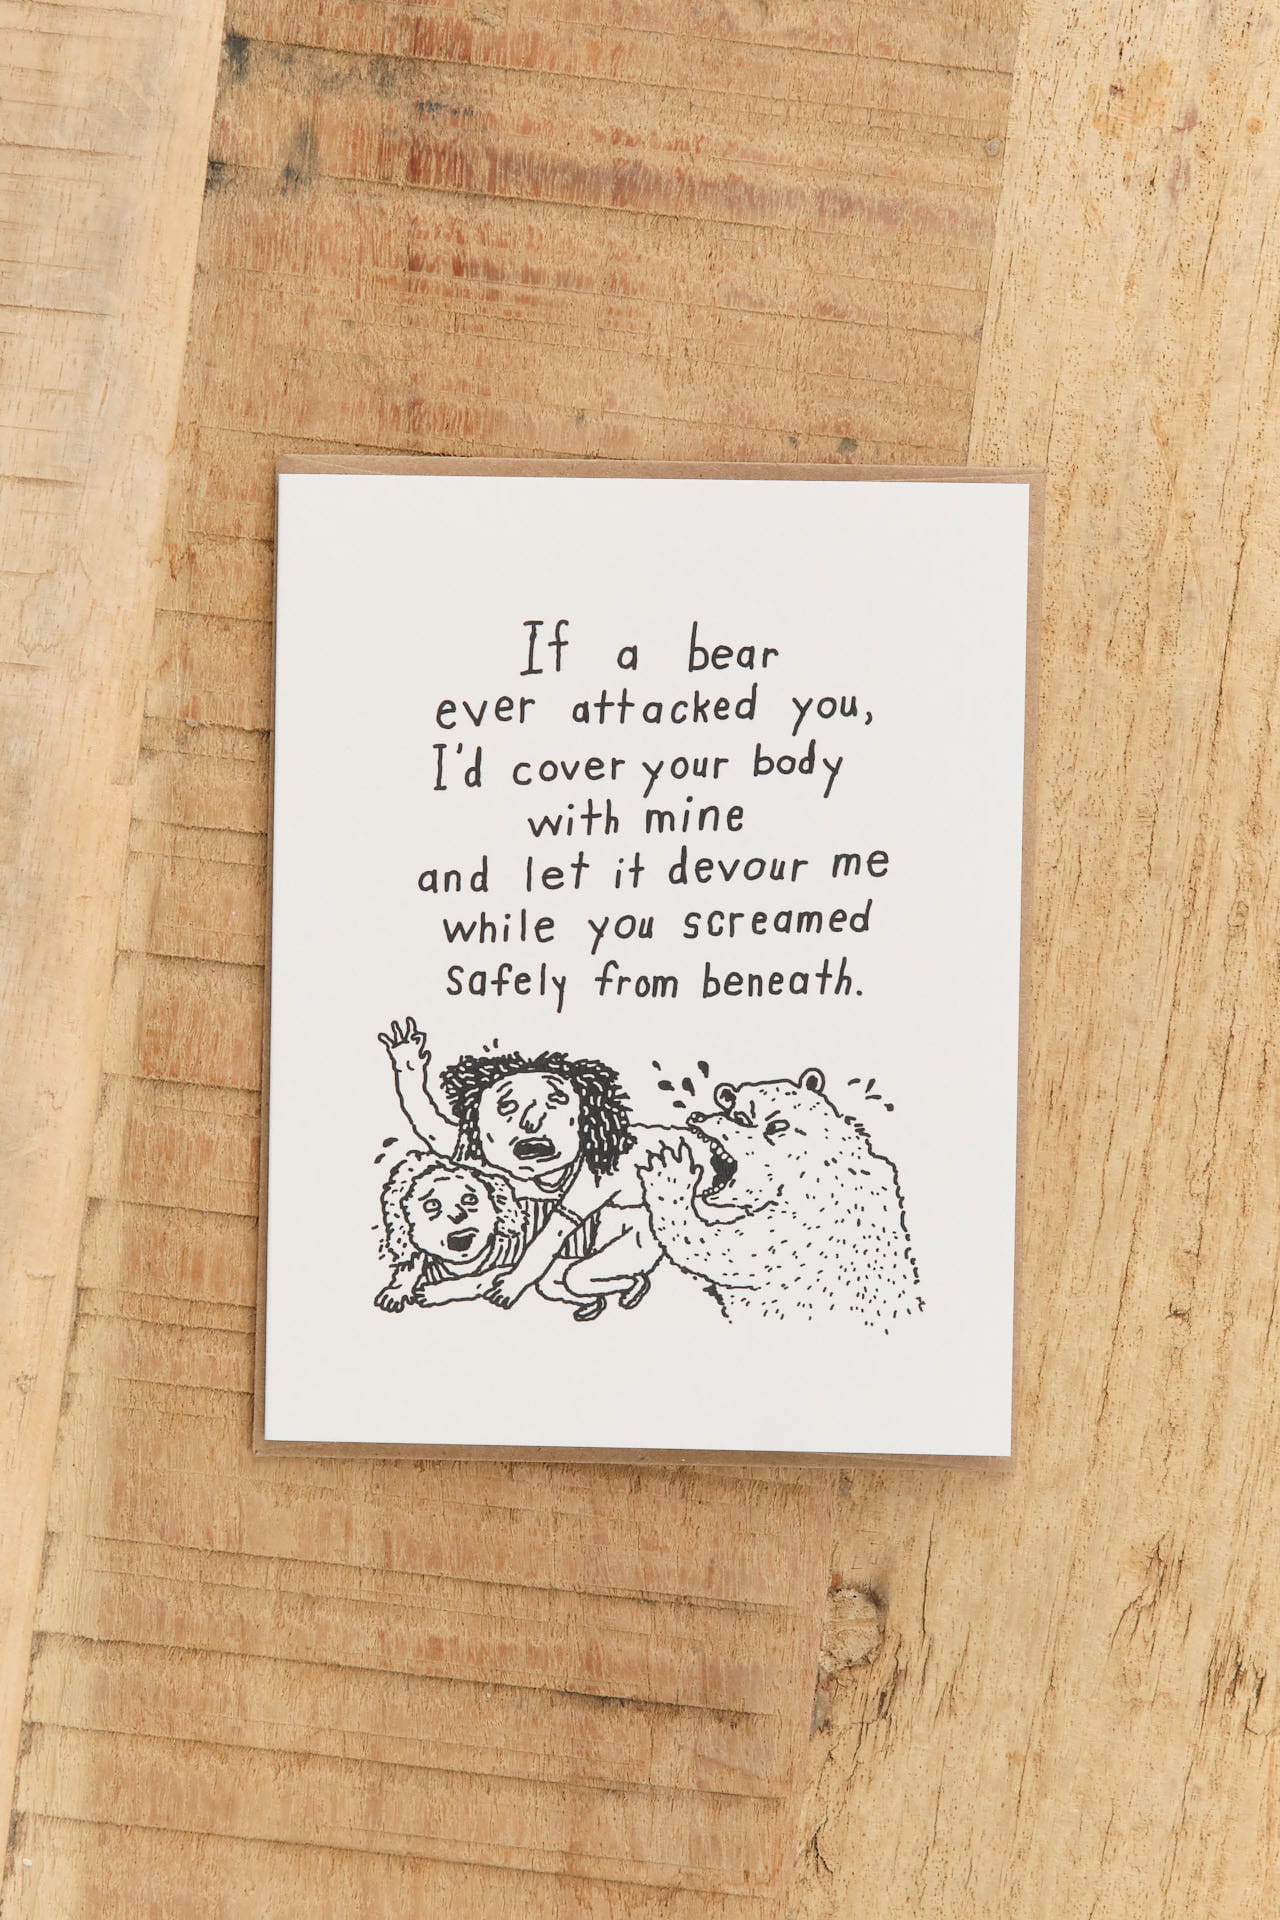 If a bear
ever attacked you,
I'd cover your body
with mine
and let it devour me
while you screamed
safely from beneath.